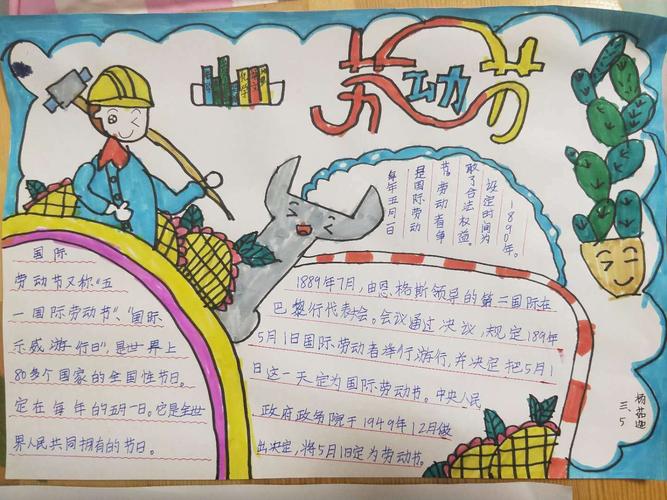 劳动节
每年五月一日
是国际劳动
节。劳动者争
取了合法权益。
设定时间为
1890年。
国际
劳动节又称“五
一国际劳动节”、“国际
示威游行日”，是世界上
80多个国家的全国性节日。
定在每年的五月一日。它是全世
界人民共同拥有的节日。
1889年7月，由恩格斯领导的第二国际在
巴黎行代表大会。会议通过决议，规定189年
5月1日国际劳动者举行游行，并决定把5月1
日这一天定为国际劳动节。中央人民
政府政务院于1949年12月做
出决定，将5月1日定为劳动节。
三、5